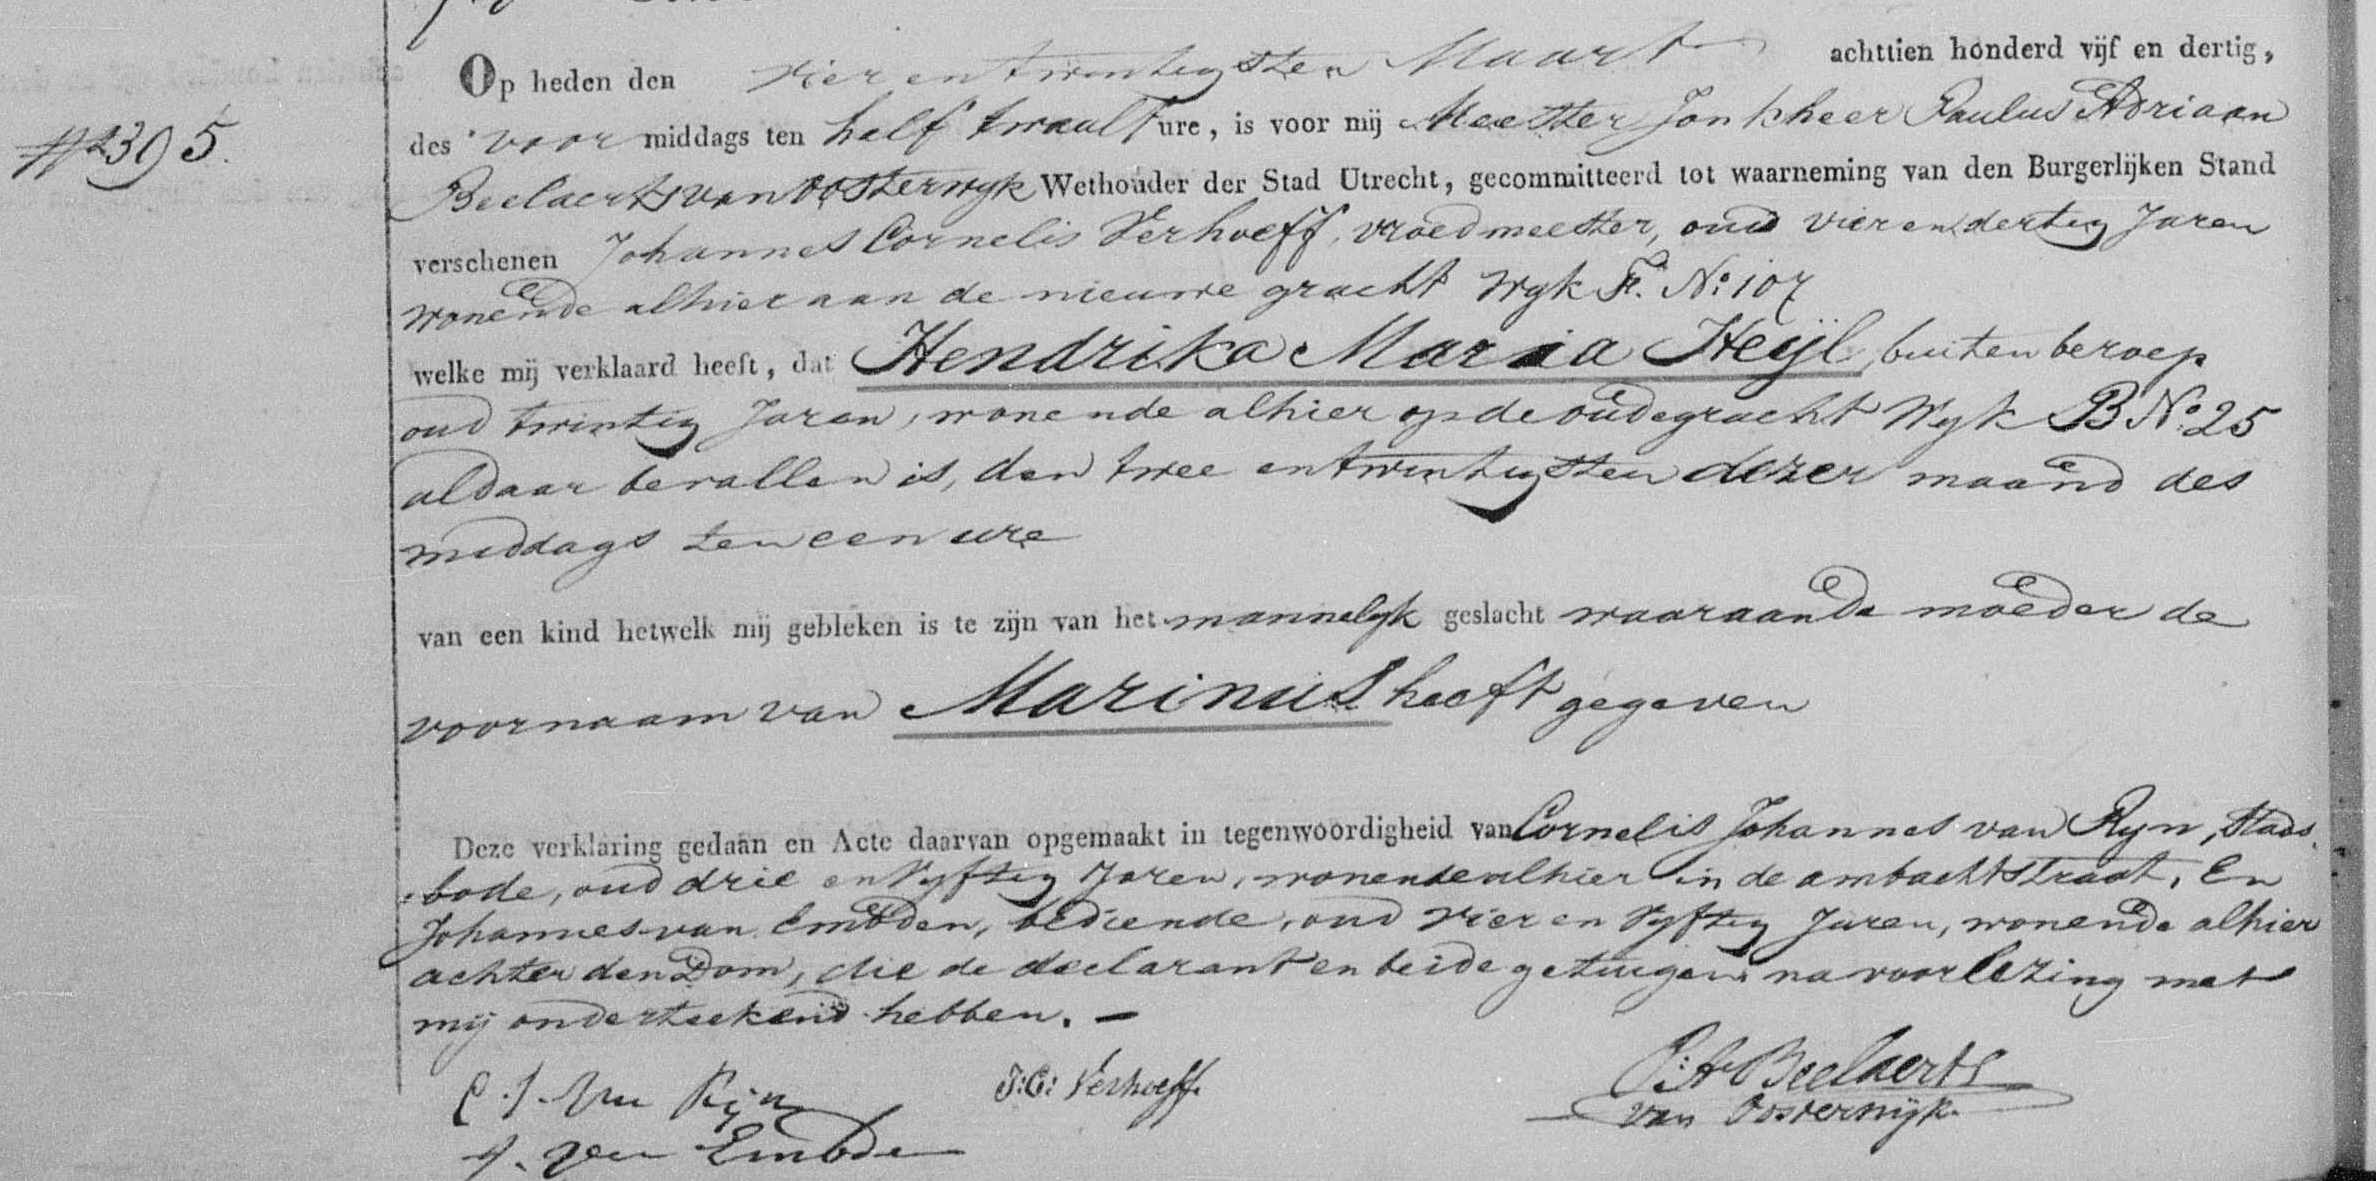 Op heden den vier en twintigsten Maart achttien honderd vijf en dertig,
N° 395.
des voor middags ten half twaalf ure, is voor mij Meester Jonkheer Paulus Adriaan
Beelaerts van Oosterwyk Wethouder der Stad Utrecht, gecommitteerd tot waarneming van den Burgerlijken Stand
verschenen Johannes Cornelis Verhoeff, vroedmeester, oud vier en dertig Jaren
wonende alhier aan de nieuwe gracht Wyk F. N° 107
welke mij verklaard heeft, dat Hendrika Maria Heyl, buiten beroep
oud twintig Jaren, wonende alhier op de oudegracht Wyk B N° 25
aldaar bevallen is, den twee en twintigsten dezer maand des
middags ten een ure
van een kind hetwelk mij gebleken is te zijn van het mannelyk geslacht waaraan de moeder de
voornaam van Marinus heeft gegeven
Deze verklaring gedaan en Acte daarvan opgemaakt in tegenwoordigheid van Cornelis Johannes van Ryn, Stads
bode, oud drie en vyftig Jaren, wonende alhier in de ambachtstraat, En
Johannes van Embden, bediende, oud vier en vyftig Jaren, wonende alhier
achter den Dom, die de declarant en beide getuigen na voorlezing met
mij onderteekend hebben. —
C. J. van Rijn
J: C: Verhoeff.
P: A Beelaerts
van Oosterwijk.
J. van Embden